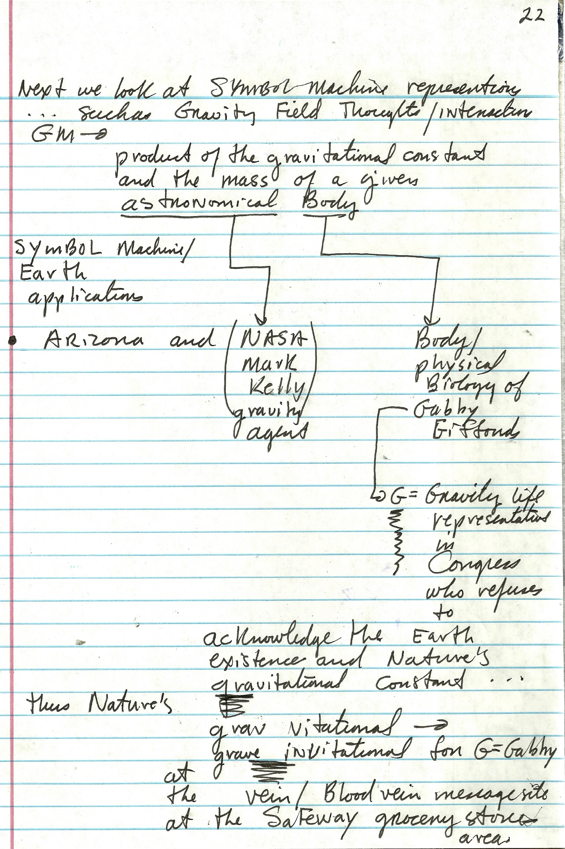 22
Next we look at SYMBOL machine representions
... such as Gravity Field Thoughts/interaction
GM →
product of the gravitational constant
and the mass of a given
astronomical Body
SYMBOL Machine/
Earth
applications
• Arizona and (NASA Body/
Mark physical
Kelly Biology of
gravity Gabby
agent Giffords
→ G = Gravity life
representative
in
Congress
who refuses
to
acknowledge the Earth
existence and Nature's
gravitational constant ...
thus Nature's
grav vitational →
grave invitational for G=Gabby
at
the vein/Blood vein message site
at the Safeway grocery stores
area